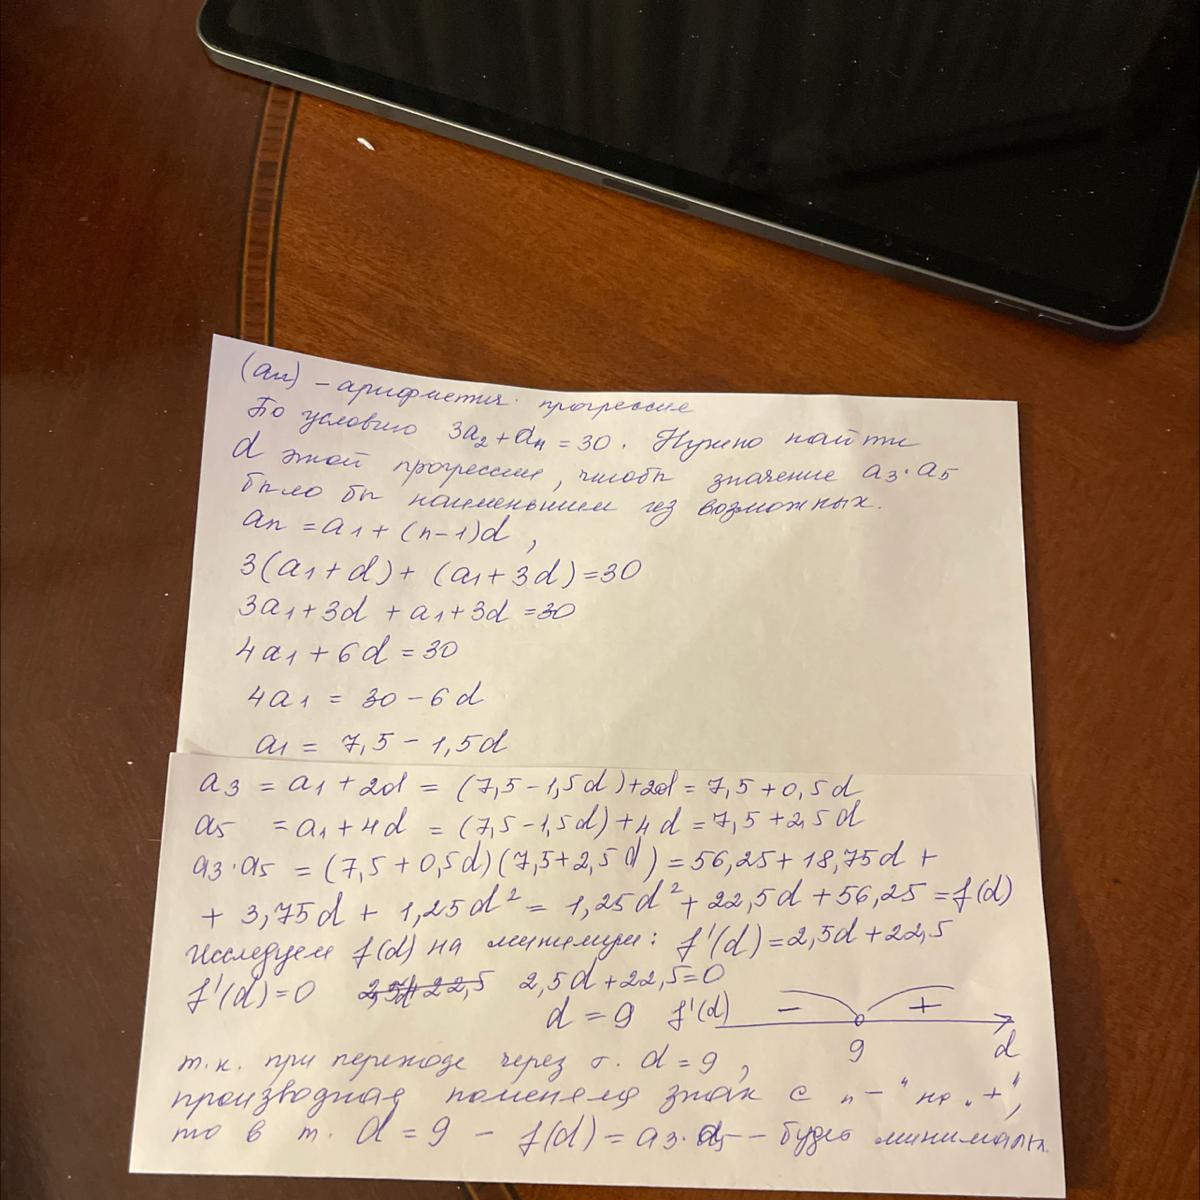 (an) - арифметич. прогрессия
По условию 3a2 + a4 = 30. Нужно найти
d этой прогрессии, чтобы значение a3·a5
было бы наименьшим из возможных.
an = a1 + (n-1)d,
3(a1+d) + (a1+3d)=30
3a1+3d + a1+3d =30
4a1 + 6d = 30
4a1 = 30 - 6d
a1 = 7,5 - 1,5d
a3 = a1 + 2d = (7,5-1,5d)+2d = 7,5+0,5d
a5 = a1+4d = (7,5-1,5d)+4d = 7,5+2,5d
a3·a5 = (7,5+0,5d)(7,5+2,5d) = 56,25+18,75d +
+ 3,75d + 1,25d² = 1,25d² + 22,5d + 56,25 = f(d)
Исследуем f(d) на минимум: f'(d)=2,5d+22,5
f'(d)=0 2,5d+22,5=0
d = 9 f'(d) - +
9 d
т.к. при переходе через т. d = 9,
производная поменяла знак с "-" на "+",
то в т. d = 9 - f(d) = a3·a5 - будет минимальн.